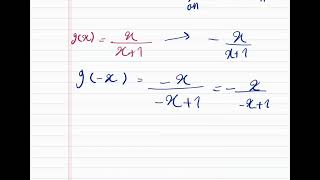 on
g(x) = x/x+1 → - x/x+1
g(-x) = -x/-x+1 = - x/-x+1